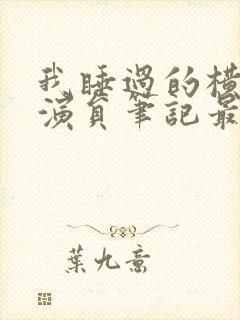 我睡過的橫
演員筆記最
葉九意